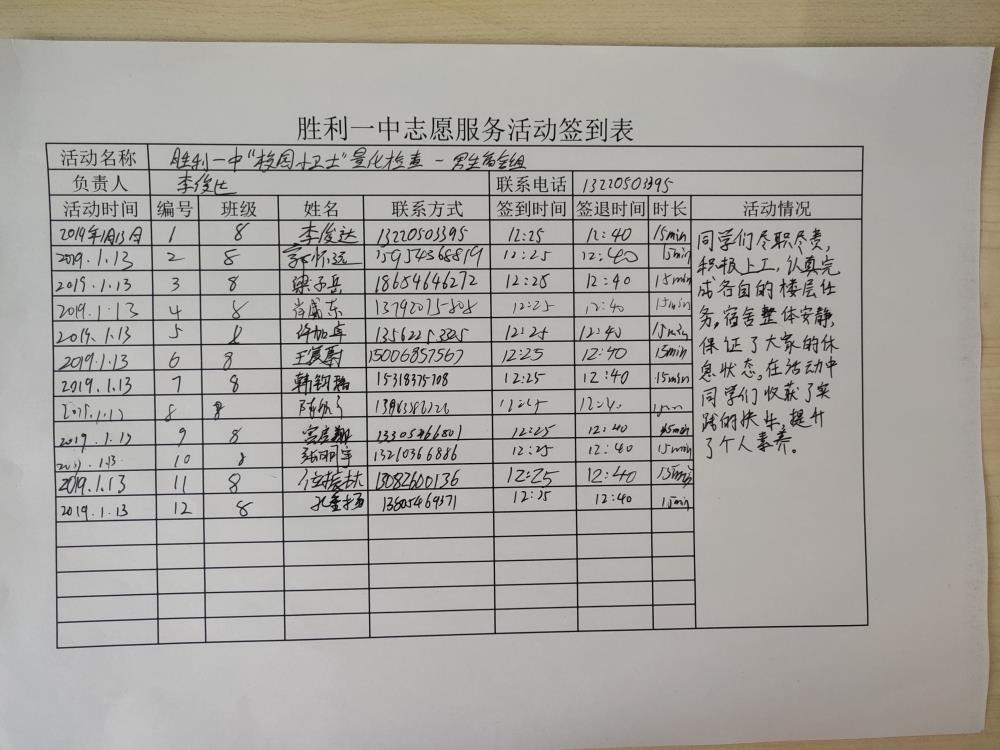 胜利一中志愿服务活动签到表
活动名称 胜利一中"校园小卫士"量化检查-男生宿舍组
负责人 李俊达 联系电话 13220503395
活动时间 编号 班级 姓名 联系方式 签到时间 签退时间 时长 活动情况
2019年1月13日 1 8 李俊达 13220503395 12:25 12:40 15min
2019.1.13 2 8 15954368819 12:25 12:40 15min
2019.1.13 3 8 梁子岳 18654646272 12:25 12:40 15min
2019.1.13 4 8 肖威东 12:25 12:40 15min
2019.1.13 5 8 许加卓 12:25 12:40 15min
2019.1.13 6 8 15006857567 12:25 12:40 15min
2019.1.13 7 8 15318375708 12:25 12:40 15min
8 8
2019.1.13 9 8 13305466801 12:25 12:40 15min
10 8 13210366886 12:25 12:40 15min
2019.1.13 11 8 13082600136 12:25 12:40 15min
2019.1.13 12 8 13605469371 12:25 12:40 15min
同学们尽职尽责,
积极上工,认真完
成各自的楼层任
务,宿舍整体安静,
保证了大家的休
息状态,在活动中
同学们收获了实
践的快乐,提升
了个人素养。